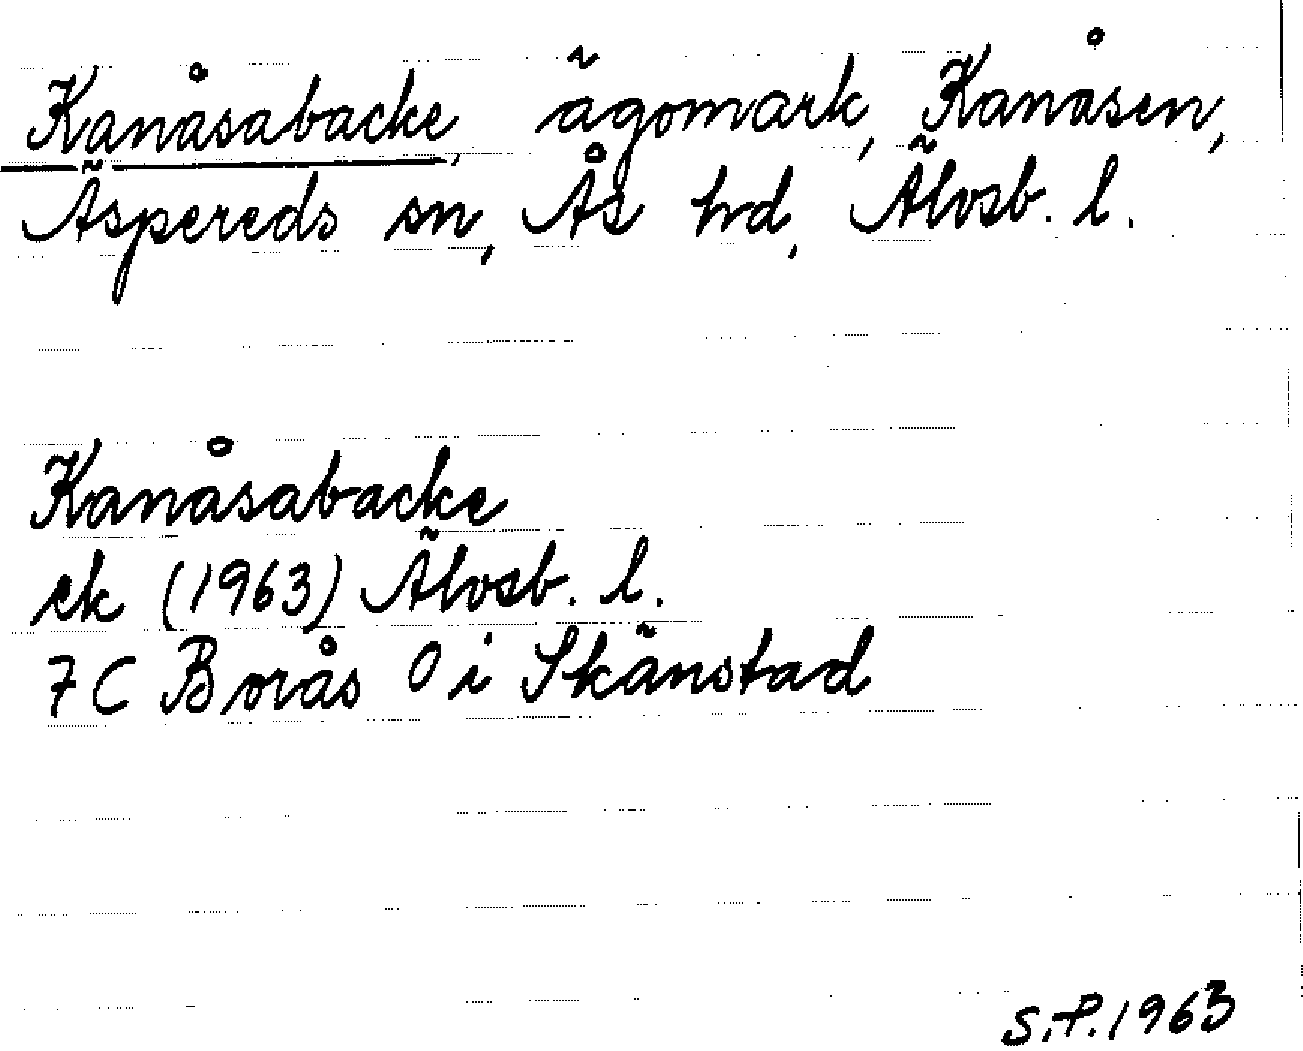 Kanåsabacke, ägomark, Kanåsen,
Äspereds sn, Ås hd, Älvsb. l.
Kanåsabacke
ek (1963) Älvsb. l.
7C Borås O i Skänstad
S.P. 1963